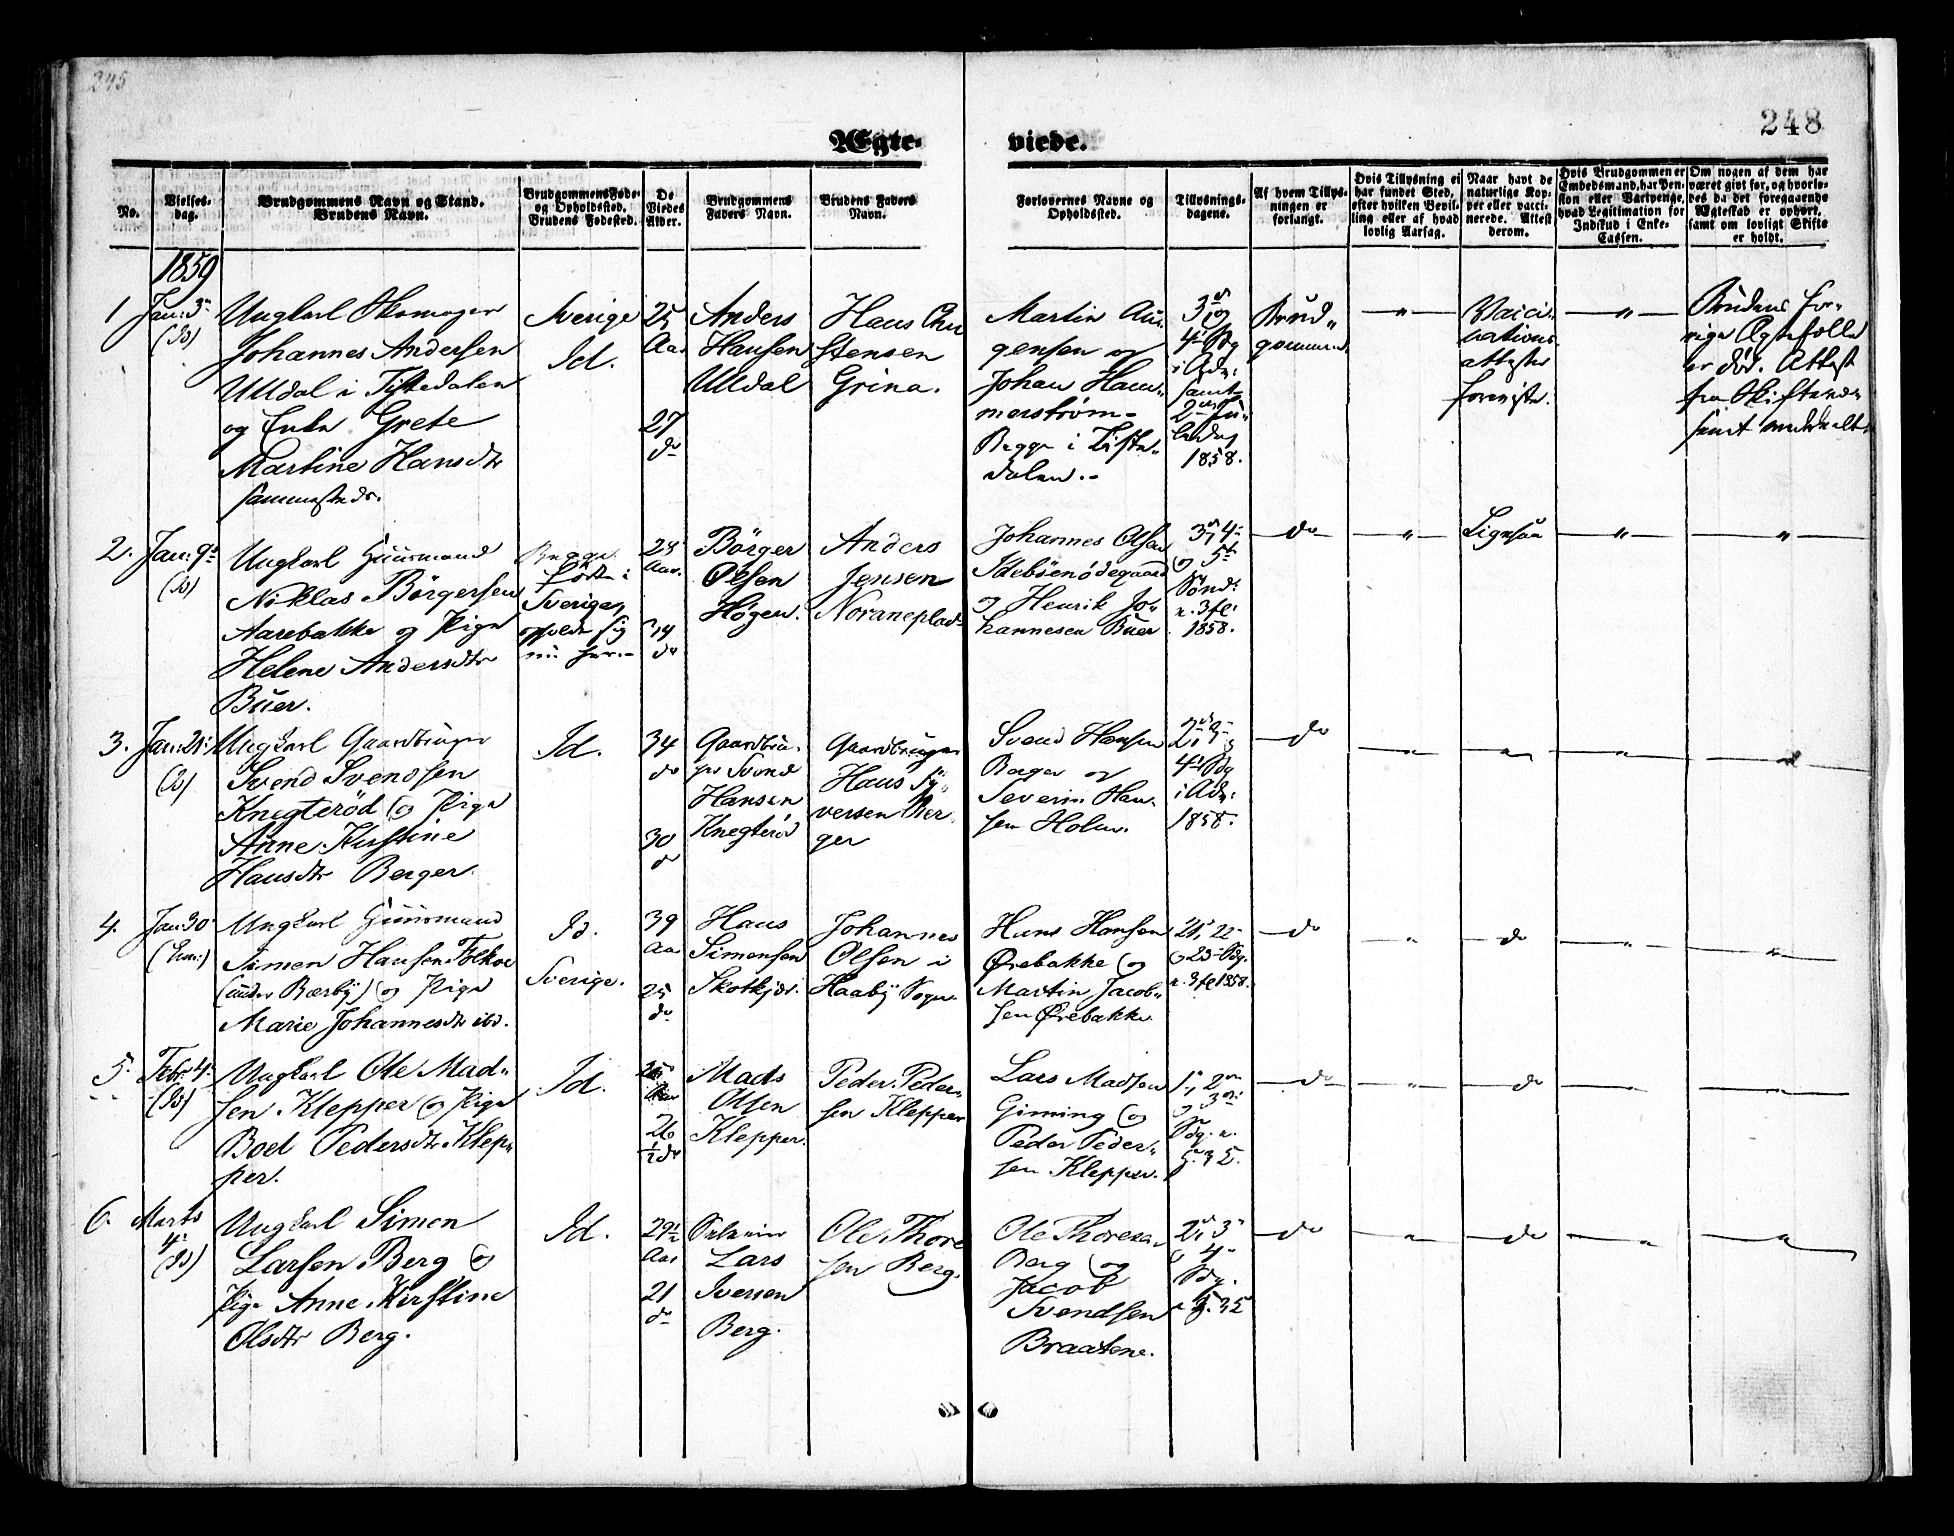 245
248
Ægte-
viede.
No.
Vielses-
dag.
Brudgommens Navn og Stand.
Brudens Navn.
Brudgommens Føde-
og Opholdssted.
Brudens Fødested.
De
Viedes
Alder.
Brudgommens
Faders Navn.
Brudens Faders
Navn.
Forlovernes Navne og
Opholdssted.
Tillysnings-
dagene.
Af hvem Tillys-
ningen er
forlangt.
Hvis Tillysning ei
har fundet Sted,
efter hvilken Bevil-
ling eller af hvad
lovlig Aarsag.
Naar havt de
naturlige Kop-
per eller vacci-
nerede. Attest
derom.
Hvis Brudgommen er
Embedsmand, har Pen-
sion eller Vartpenge,
hvad Legitimation for
Indskud i Enke-
Cassen.
Om nogen af dem har
været gift før, og hvorle-
des da det foregaaende
Ægteskab er ophørt,
samt om lovligt Skifte
er holdt.
1859
1
Jan: 3
(Id)
Ungkarl Skomager
Johannes Andersen
Ulldal i Tistedalen
og Enke Grete
Martine Hansdtr
sammesteds.
Sverige
Id.
25
Aar
27
do
Anders
Hansen
Ulldal
Hans Chri
stensen
Grina.
Martin Au-
gensen og
Johan Ham-
merstrøm
Begge i Tiste-
dalen.
3 og
4 Sdg
i Adv:
samt
2
1858.
Brud-
gommen
"
Vacci-
nations
attester
foreviste.
"
Brudens for-
rige Ægtefælle
er død. Attest
fra Skifteret
2.
Jan: 9
(Id)
Ungkarl Huusmand
Niklas Børgersen
Aarebakke og Pige
Helene Andersdtr
Buer.
Begge
fødte i
Sverige,
opholde sig
nu her.
Aar.
do
Børger
Olsen
Høgen.
Anders
Jensen
Noraneplads
Johannes Olsen
Idebøenødegaard
og Henrik Jo-
hannesen Buer
3, 4
og 5
Sønd:
1858.
do
"
Ligesaa
"
"
3.
Jan: 21
(Id)
Ungkarl Gaardbruger
Svend Svendsen
Knegterød og Pige
Anne Kirstine
Hansdtr Berger.
Id.
34
do
30
do
Gaardbru-
ger Svend
Hansen
Knegterød
Gaardbruger
Hans Sy-
versen Ber
ger
Svend Hansen
Berger og
Severin Han-
sen Holm.
2, 3 og
4 Sdg
i Adv:
1858.
do
"
"
"
"
4.
Jan: 30
Ungkarl Huusmand
Simen Hansen Folkoe
(under Bærby) og Pige
Marie Johannesdtr ibd.
Id.
Sverige.
39
Aar
25
do
Hans
Simensen
Skotkjær.
Johannes
Olsen i
Haaby Sogn.
Hans Hansen
Ørebakke og
Martin Jacob-
sen Ørebakke.
21, 22
og 23 Sdg.
1858.
do
"
do
"
"
5.
Febr: 4
(Id)
Ungkarl Ole Mad-
sen Klepper og Pige
Boel Pedersdtr Klep-
per.
Id.
25
26
1/2 do
Mads
Olsen
Klepper.
Peder Peder-
sen Klepper
Lars Madsen
Gimming og
Peder Peder-
sen Klepper.
1, 2
og 3
Sdg.
do
"
do
"
"
6.
Marts
4
(Id)
Ungkarl Simen
Larsen Berg og
Pige Anne Kirstine
Olsdtr Berg.
Id.
29 1/2
Aar
21
do
Selveier
Lars
Iversen
Berg.
Ole Thore
sen Berg.
Ole Thoresen
Berg og
Jacob
Svendsen
Braatene.
2, 3
og 4
Sdg.
do
"
do
"
"